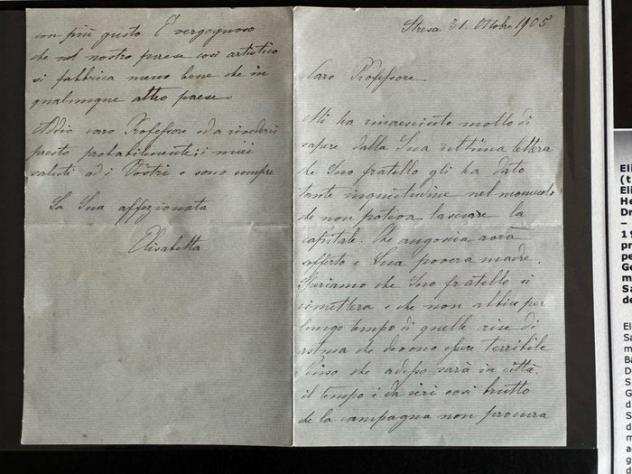 con più gusto È vergognoso
che nel nostro paese così artistico
si fabbrica meno bene che in
qualunque altro paese.
Addio caro Professore ed a rivederci
presto probabilmente; i miei
saluti ai Vostri e sono sempre
La Sua affezionata
Elisabetta
Stresa 21. Ottobre 1905
Caro Professore
Mi ha rincresciuto molto di
sapere dalla Sua ultima lettera
che Suo fratello gli ha dato
tante inquietudine nel momento
di non poteva lasciare la
capitale. Che angonia avrà
sofferto e Sua povera madre.
Speriamo che Suo fratello si
rimetterà e che non abbia per
lungo tempo di quelle crise di
astma che devono essere terribile
Credo che adesso sarà in città
il tempo è da ieri così brutto
che la campagna non procura